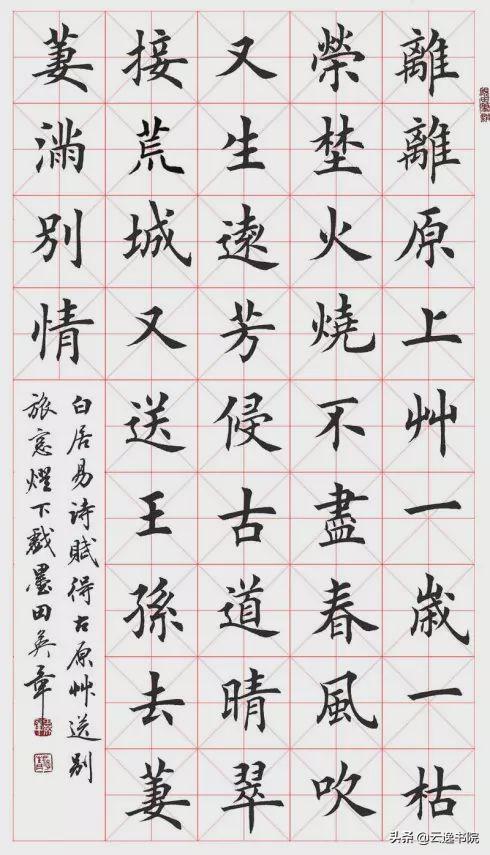 離離原上艸一歲一枯
榮埜火燒不盡春風吹
又生遠芳侵古道晴翠
接荒城又送王孫去萋
萋滿別情
白居易诗賦得古原艸送别
旅寓燈下戲墨田英章
头条@云逸书院